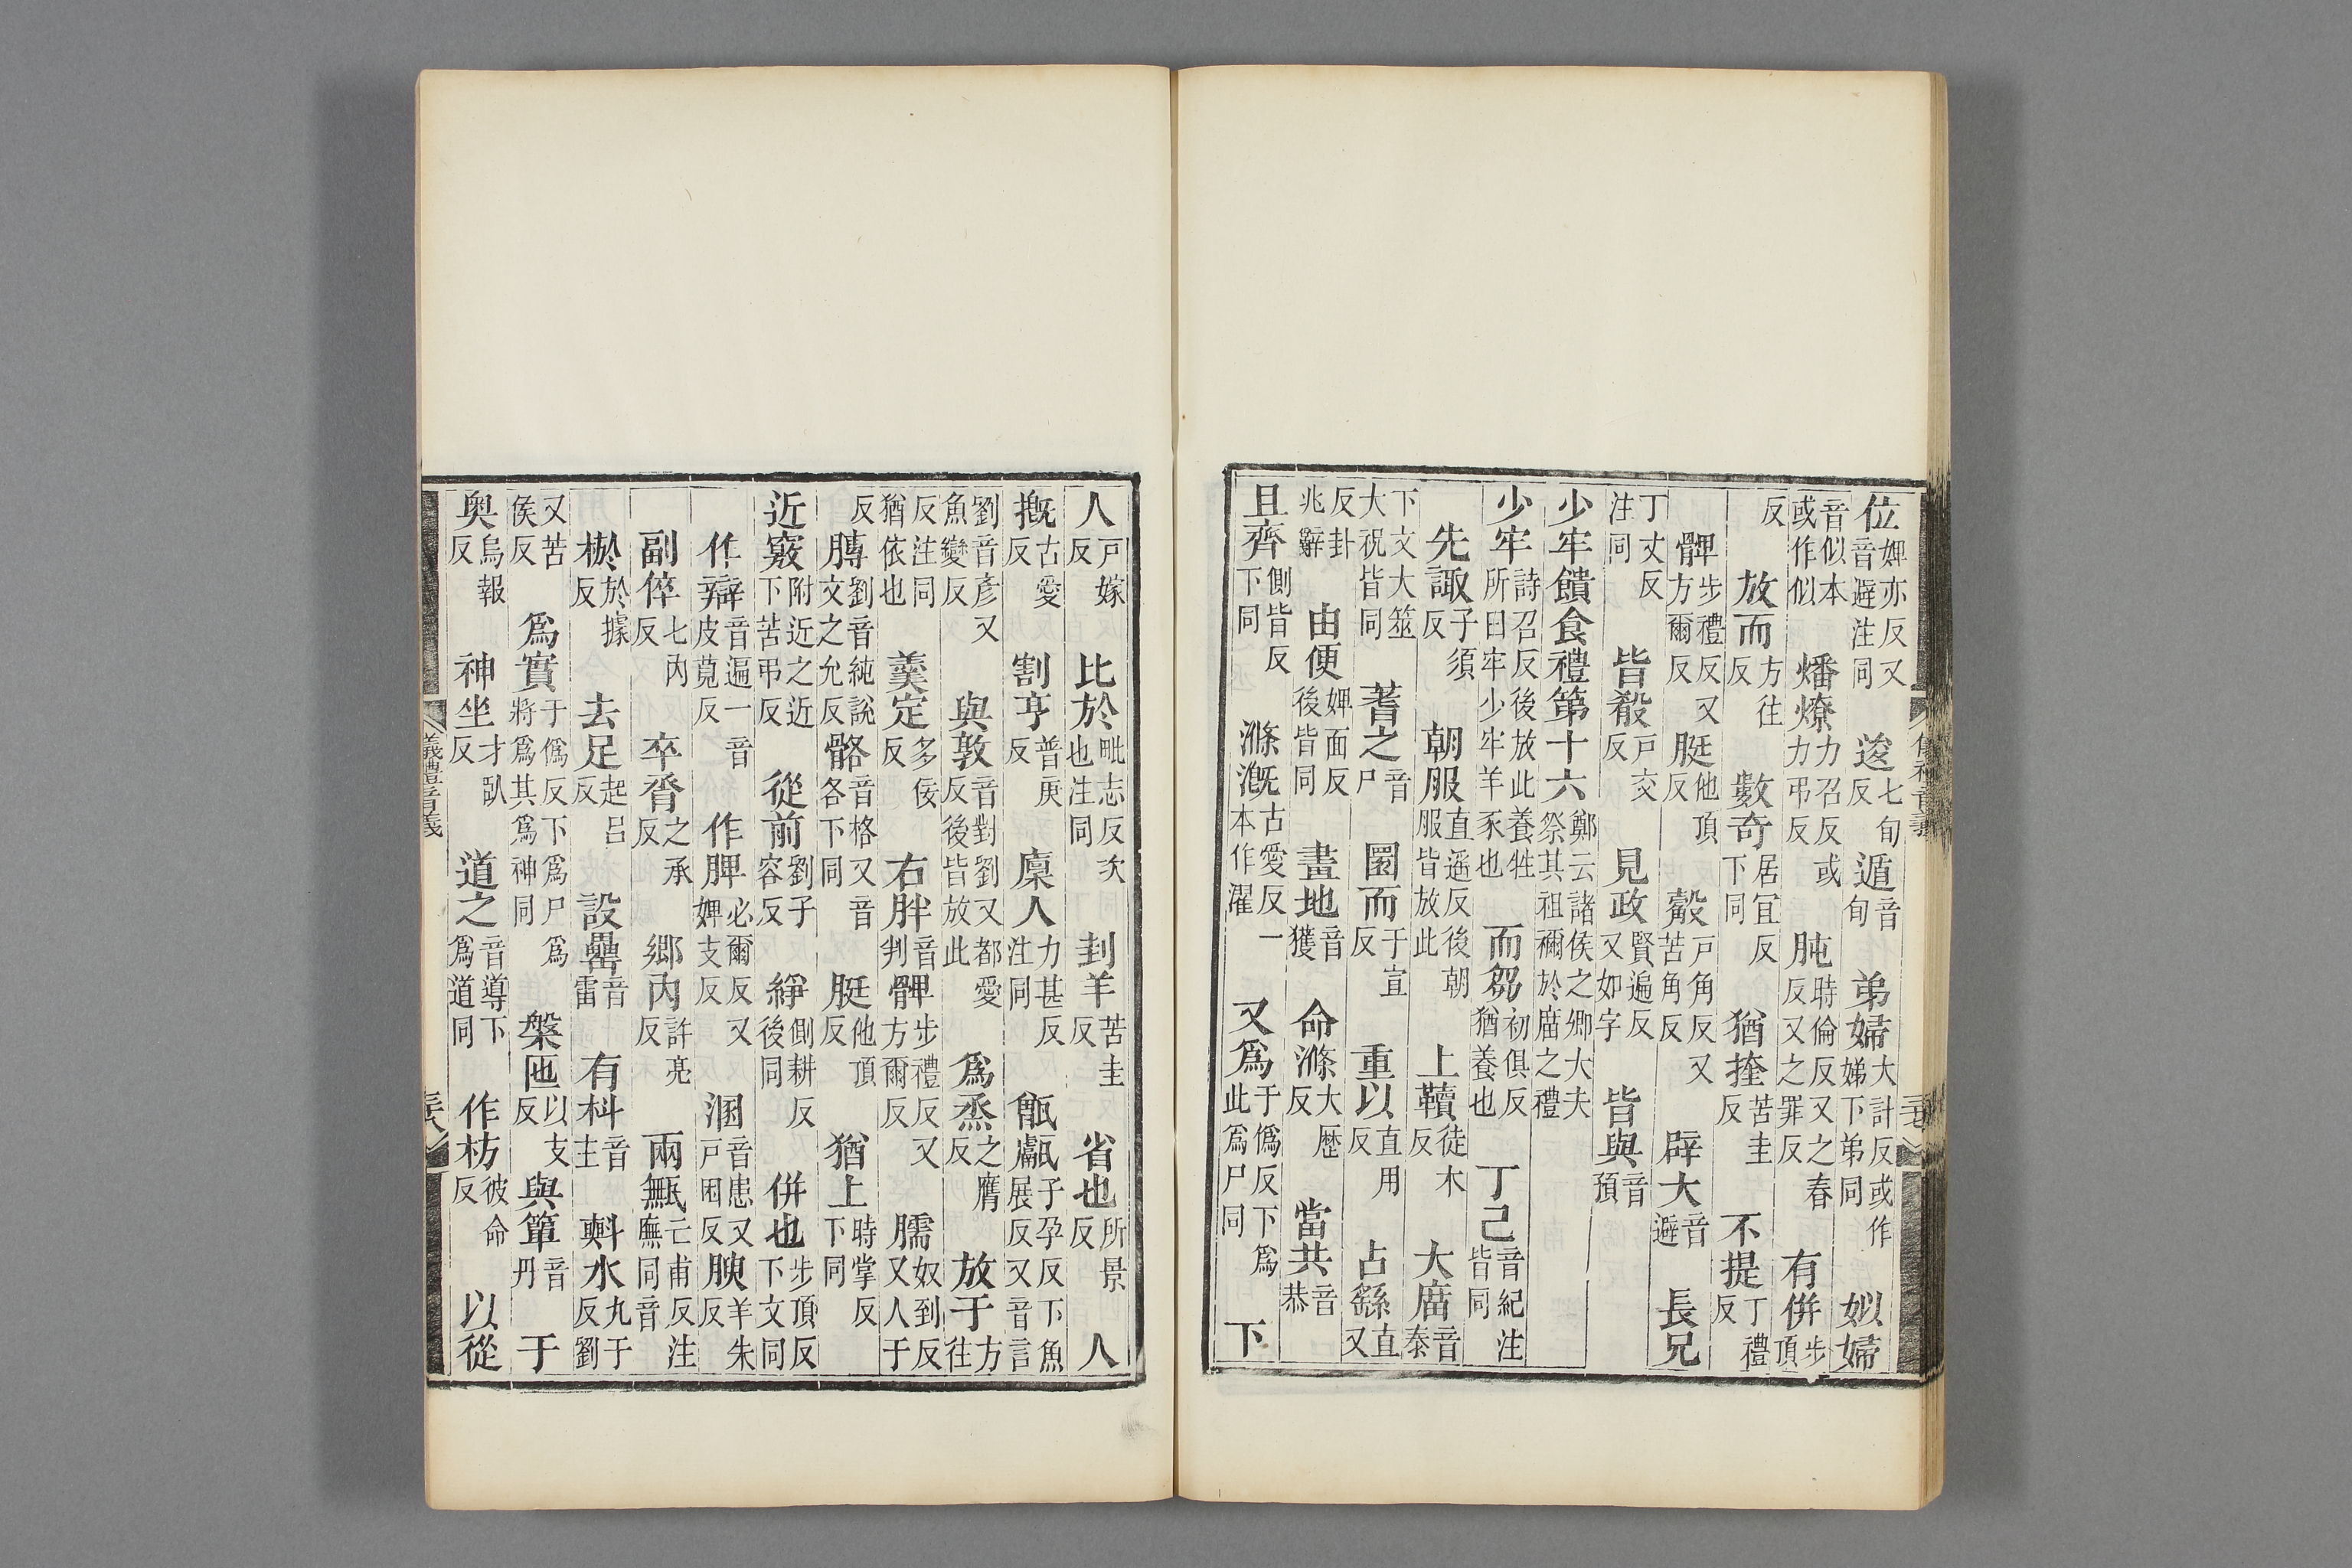 位婢亦反又音避注同 逡七旬反 遁音旬 弟婦大計反或作娣下弟同 姒婦
音似本或作似 燔燎力召反或力弔反 肫時倫反又之春反又之罪反 有併步頂
反 放而方往反 數奇居宜反下同 猶挃苦圭反 不提丁禮反
髀步禮反又方爾反 脡他頂反 觳戶角反又苦角反 辟大音避 長兄
丁丈反注同 皆殽戶交反 見政賢遍反又如字 皆與音預
少牢饋食禮第十六鄭云諸侯之卿大夫祭其祖禰於廟之禮
少牢詩召反後放此養牲所曰牢少牢羊豕也 而芻初俱反猶養也 丁己音紀注皆同
先諏子須反 朝服直遙反後朝服皆放此 上韇徒木反 大廟音泰
下文大筮大祝皆同 蓍之音尸 圜而于宣反 重以直用反 占繇直又
反卦兆辭 由便婢面反後皆同 畫地音獲 命滌大歷反 當共音恭
且齊側皆反下同 滌漑古愛反一本作濯 又爲于僞反下爲此爲尸同 下
人戶嫁反 比於毗志反次也注同 刲羊苦圭反 省也所景反 人
摡古愛反 割亨普庚反 廩人力甚反注同 甑甗子孕反下魚展反又音言
劉音彥又魚變反 與敦音對劉又都愛反後皆放此 爲烝之膺反 放于方往
反注同猶依也 羹定多佞反 右胖音判 髀步禮反又方爾反 臑奴到反又人于
反 膊劉音純說文之允反 骼音格又音各下同 脡他頂反 猶上時掌反下同
近竅附近之近下苦弔反 從前劉子容反 綪側耕反後同 併也步頂反下文同
作辯音遍一音皮莧反 作脾必爾反又婢支反 溷音患又戶困反 腴羊朱反
副倅七內反 卒脀之承反 鄉內許亮反 兩甒亡甫反注廡同音
棜於據反 去足起呂反 設罍音雷 有枓音主 㪺水九于反劉
又苦侯反 爲實于僞反下爲尸爲將爲其爲神同 槃匜以支反 與簞音丹 于
奥烏報反 神坐才臥反 道之音導下爲道同 作枋彼命反 以從
儀禮音義